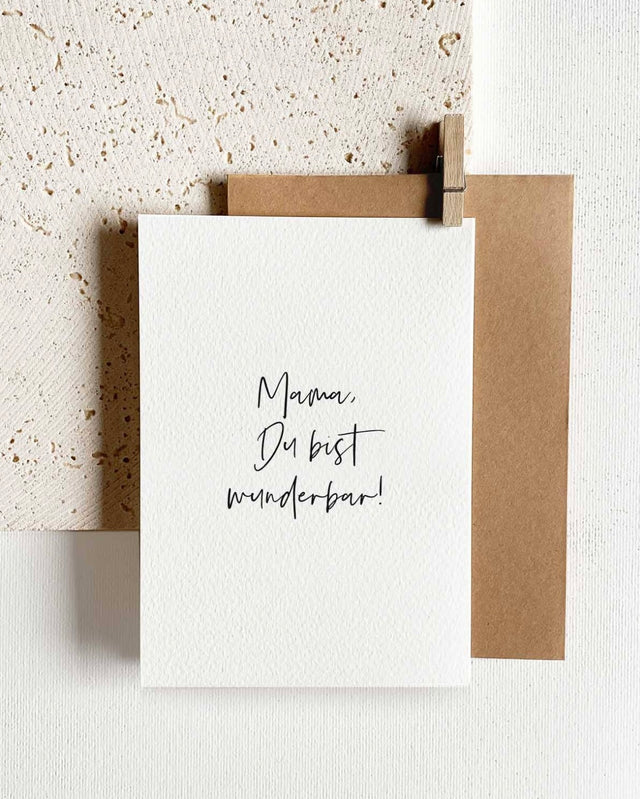 Mama,
Du bist
wunderbar!